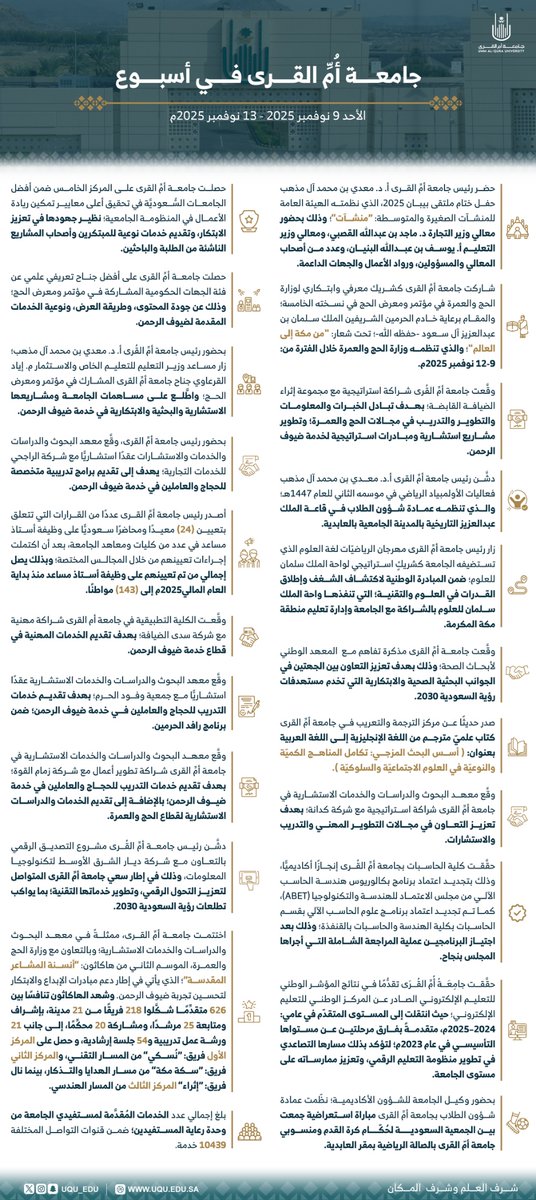 جامعة أم القرى
UMM AL-QURA UNIVERSITY
جامعــة أُمِّ القــرى فــي أسبــوع
الأحد 9 نوفمبر 2025 - 13 نوفمبر 2025م
حضر رئيس جامعة أمّ القرى أ. د. معدي بن محمد آل مذهب
حفل ختام ملتقى بيبان 2025، الذي نظمته الهيئة العامة
للمنشآت الصغيرة والمتوسطة: "منشآت"؛ وذلك بحضور
معالي وزير التجارة د. ماجد بن عبدالله القصبي، ومعالي وزير
التعليم أ. يوسف بن عبدالله البنيان، وعدد من أصحاب
المعالي والمسؤولين، ورواد الأعمال والجهات الداعمة.
شاركت جامعة أمّ القرى كشريك معرفي وابتكاري لوزارة
الحج والعمرة في مؤتمر ومعرض الحج في نسخته الخامسة؛
والمقام برعاية خادم الحرمين الشريفين الملك سلمان بن
عبدالعزيز آل سعود -حفظه الله-؛ تحت شعار: "من مكة إلى
العالم"؛ والذي تنظمه وزارة الحج والعمرة خلال الفترة من:
9-12 نوفمبر 2025م.
وقّعت جامعة أمّ القُرى شراكة استراتيجية مع مجموعة إثراء
الضيافة القابضة؛ بهدف تبادل الخبرات والمعلومات
والتطوير والتدريب في مجالات الحج والعمرة؛ وتطوير
مشاريع استشارية ومبادرات استراتيجية لخدمة ضيوف
الرحمن.
دشَّن رئيس جامعة أمّ القرى أ.د. معدي بن محمد آل مذهب
فعاليات الأولمبياد الرياضي في موسمه الثاني للعام 1447هـ؛
والذي تنظمه عمادة شؤون الطلاب في قاعة الملك
عبدالعزيز التاريخية بالمدينة الجامعية بالعابدية.
زار رئيس جامعة أمّ القرى مهرجان الرياضيّات لغة العلوم الذي
تستضيفه الجامعة كشريكٍ استراتيجي لواحة الملك سلمان
للعلوم؛ ضمن المبادرة الوطنية لاكتشاف الشغف وإطلاق
القدرات في العلوم والتقنية؛ التي تنفذها واحة الملك
سلمان للعلوم بالشراكة مع الجامعة وإدارة تعليم منطقة
مكة المكرمة.
وقَّعت جامعة أمّ القرى مذكرة تفاهم مع المعهد الوطني
لأبحاث الصحة؛ وذلك بهدف تعزيز التعاون بين الجهتين في
الجوانب البحثية الصحية والابتكارية التي تخدم مستهدفات
رؤية السعودية 2030.
صدر حديثًا عن مركز الترجمة والتعريب في جامعة أمّ القرى
كتاب علميّ مترجم من اللغة الإنجليزية إلى اللغة العربية
بعنوان: ( أسس البحث المزجي: تكامل المناهج الكميّة
والنوعيّة في العلوم الاجتماعيّة والسلوكيّة ).
وقَّع معهـد البحوث والدراسات والخدمات الاستشارية في
جامعة أمّ القرى شراكة استراتيجية مع شركة كدانة؛ بهدف
تعزيـز التعـاون في مجـالات التطويـر المهنـي والتدريب
والاستشارات.
حقَّقت كلية الحاسبات بجامعة أمّ القرى إنجازًا أكاديميًّا،
وذلك بتجديد اعتماد برنامج بكالوريوس هندسة الحاسب
الآلي من مجلس الاعتماد للهندسة والتكنولوجيا (ABET)،
كما تم تجديد اعتماد برنامج علوم الحاسب الآلي بقسم
الحاسبات بكلية الهندسة والحاسبات بالقنفذة؛ وذلك بعد
اجتياز البرنامجيـن عملية المراجعة الشاملة التي أجراها
المجلس بنجاح.
حقَّقت جامعة أُمّ القُرَى تقدُّمًا في نتائج المؤشر الوطني
للتعليم الإلكتروني الصادر عن المركز الوطني للتعليم
الإلكتروني؛ حيث انتقلت إلى المستوى المتقدّم في عامي:
2024–2025م، متقدمةً بفارق مرحلتين عن مستواها
التأسيسي في عام 2023م؛ لتؤكد بذلك مسارها التصاعدي
في تطوير منظومة التعليم الرقمي، وتعزيز ممارساته على
مستوى الجامعة.
بحضور وكيل الجامعة للشؤون الأكاديمية؛ نظَّمت عمادة
شؤون الطلاب بجامعة أمّ القرى مباراة استعراضية جمعت
بين الجمعية السعوديـة لحُكّام كرة القدم ومنسوبي
جامعة أمّ القرى بالصالة الرياضية بمقر العابدية.
حصلت جامعـة أمّ القرى على المركز الخامس ضمن أفضل
الجامعات السُّعوديَّة في تحقيق أعلى معايير تمكين ريادة
الأعمال في المنظومة الجامعية؛ نظير جهودها في تعزيز
الابتكار، وتقديم خدمات نوعية للمبتكرين وأصحاب المشاريع
الناشئة من الطلبة والباحثين.
حصلت جامعة أمّ القرى على أفضل جناح تعريفي علمي عن
فئة الجهات الحكومية المشاركة في مؤتمر ومعرض الحج؛
وذلك عن جودة المحتوى، وطريقة العرض، ونوعية الخدمات
المقدمة لضيوف الرحمن.
بحضور رئيس جامعة أمّ القرى أ. د. معدي بن محمد آل مذهب؛
زار مساعد وزير التعليم للتعليم الخاص والاستثمار م. إياد
القرعاوي جناح جامعة أمّ القرى المشارك في مؤتمر ومعرض
الحج؛ واطَّلع على مساهمات الجامعة ومشاريعها
الاستشارية والبحثية والابتكارية في خدمة ضيوف الرحمن.
بحضور رئيس جامعة أمّ القرى، وقَّع معهد البحوث والدراسات
والخدمات والاستشارات عقدًا استشاريًّا مع شركة الراجحي
للخدمات التجارية؛ يهدف إلى تقديم برامج تدريبية متخصصة
للحجاج والعاملين في خدمة ضيوف الرحمن.
أصدر رئيس جامعة أمّ القرى عددًا من القرارات التي تتعلق
بتعيين (24) معيدًا ومحاضرًا سعوديًّا على وظيفة أستاذ
مساعد في عدد من كليات ومعاهد الجامعة، بعد أن اكتملت
إجراءات تعيينهم من خلال المجالس المختصة؛ وبذلك يصل
إجمالي من تم تعيينهم على وظيفة أستاذ مساعد منذ بداية
العام المالي2025م إلى (143) مواطنًا.
وقَّعت الكلية التطبيقية في جامعة أم القرى شراكة مهنية
مع شركة سدى الضيافة؛ بهدف تقديم الخدمات المهنية في
قطاع خدمة ضيوف الرحمن.
وقَّع معهد البحوث والدراسات والخدمات الاستشارية عقدًا
استشاريًّا مع جمعية وفود الحرم؛ بهدف تقديـم خدمات
التدريب للحجاج والعاملين في خدمة ضيوف الرحمن؛ ضمن
برنامج رافد الحرمين.
وقَّع معهـد البحوث والدراسات والخدمات الاستشارية في
جامعة أمّ القرى شراكة تطوير أعمال مع شركة زمام القوة؛
بهدف تقديم خدمات التدريب للحجاج والعاملين في خدمة
ضيـوف الرحمن؛ بالإضافة إلى تقديم الخدمات والدراسات
الاستشارية لقطاع الحج والعمرة.
دشَّـن رئيـس جامعة أمّ القُرى مشروع التصديق الرقمي
بالتعاون مع شركة ديار الشرق الأوسط لتكنولوجيا
المعلومات، وذلك في إطار سعي جامعة أمّ القرى المتواصل
لتعزيـز التحول الرقمي، وتطوير خدماتها التقنية؛ بما يواكب
تطلعات رؤية السعودية 2030.
اختتمـت جامعة أمّ القرى، ممثلـةً في معهـد البحـوث
والدراسات والخدمات الاستشارية؛ وبالتعاون مع وزارة الحج
والعمـرة، الموسم الثاني من هاكاثون: "أنسنـة المشاعر
المقدسة"؛ الذي يأتي في إطار دعم مبادرات الإبداع والابتكار
لتحسين تجربة ضيوف الرحمن. وشهد الهاكاثون تنافسًا بين
626 متقدِّمًا شكَّلوا 218 فريقًا من 21 مدينة، بإشراف
ومتابعة 25 مرشدًا، ومشاركة 20 محكّمًا، إلى جانب 21
ورشة عمل تدريبية و54 جلسة إرشادية، و حصل على المركز
الأول فريق: "نُسكي" من المسار التقني، والمركز الثاني
فريق: "سكة مكة" من مسار الهدايا والتذكار، بينما نال
فريق: "إثراء" المركز الثالث من المسار الهندسي.
بلغ إجمالي عدد الخدمات المُقدَّمة لمستفيدي الجامعة من
وحدة رعاية المستفيدين؛ ضمـن قنوات التواصل المختلفة
10439 خدمة.
شـرف العـلـم وشـرف الـمـكـان
WWW.UQU.EDU.SA
UQU_EDU